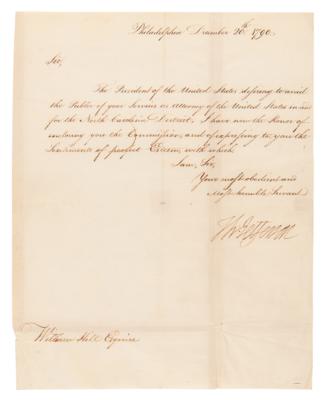 Philadelphia December 20th 1790.
Sir,
The President of the United States desiring to avail
the Public of your Services as Attorney of the United States in and
for the North Carolina District, I have now the Honor of
enclosing you the Commission, and of expressing to you the
Sentiments of perfect Esteem, with which
I am, Sir,
Your most obedient and
Most humble Servant
Th: Jefferson
William Hill Esquire